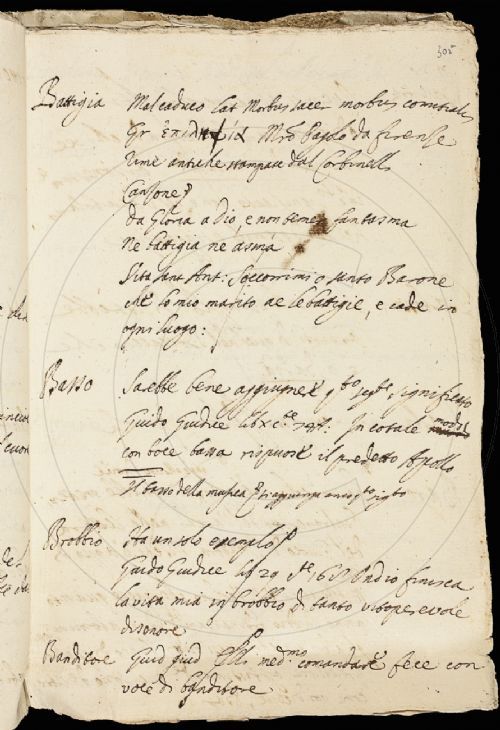 305
Battigia Malcaduco Lat Morbus sacer morbus comitialis
Gr Mro Pagolo da firenze
rime antiche stampate dal Corbinelli
Canzone
da Gloria a Dio, e non teme fantasma
Ne battigia ne asma
Vita Sant Ant: Soccorrimi o santo Barone
che lo mio marito ae le battigie, e cade in
ogni luogo:
Basso Sarebbe bene aggiugnere significato
Guido Giudice In cotale modo
con boce bassa rispuose il predetto Apollo
Il basso della musica
Brobbio Ha un solo esemplo
Guido Giudice lib 29 Ond io finisca
la vita mia in brobbio di tanto vituperevole
disnore
Banditore Guid giud medmo comandare fece con
voce di banditore